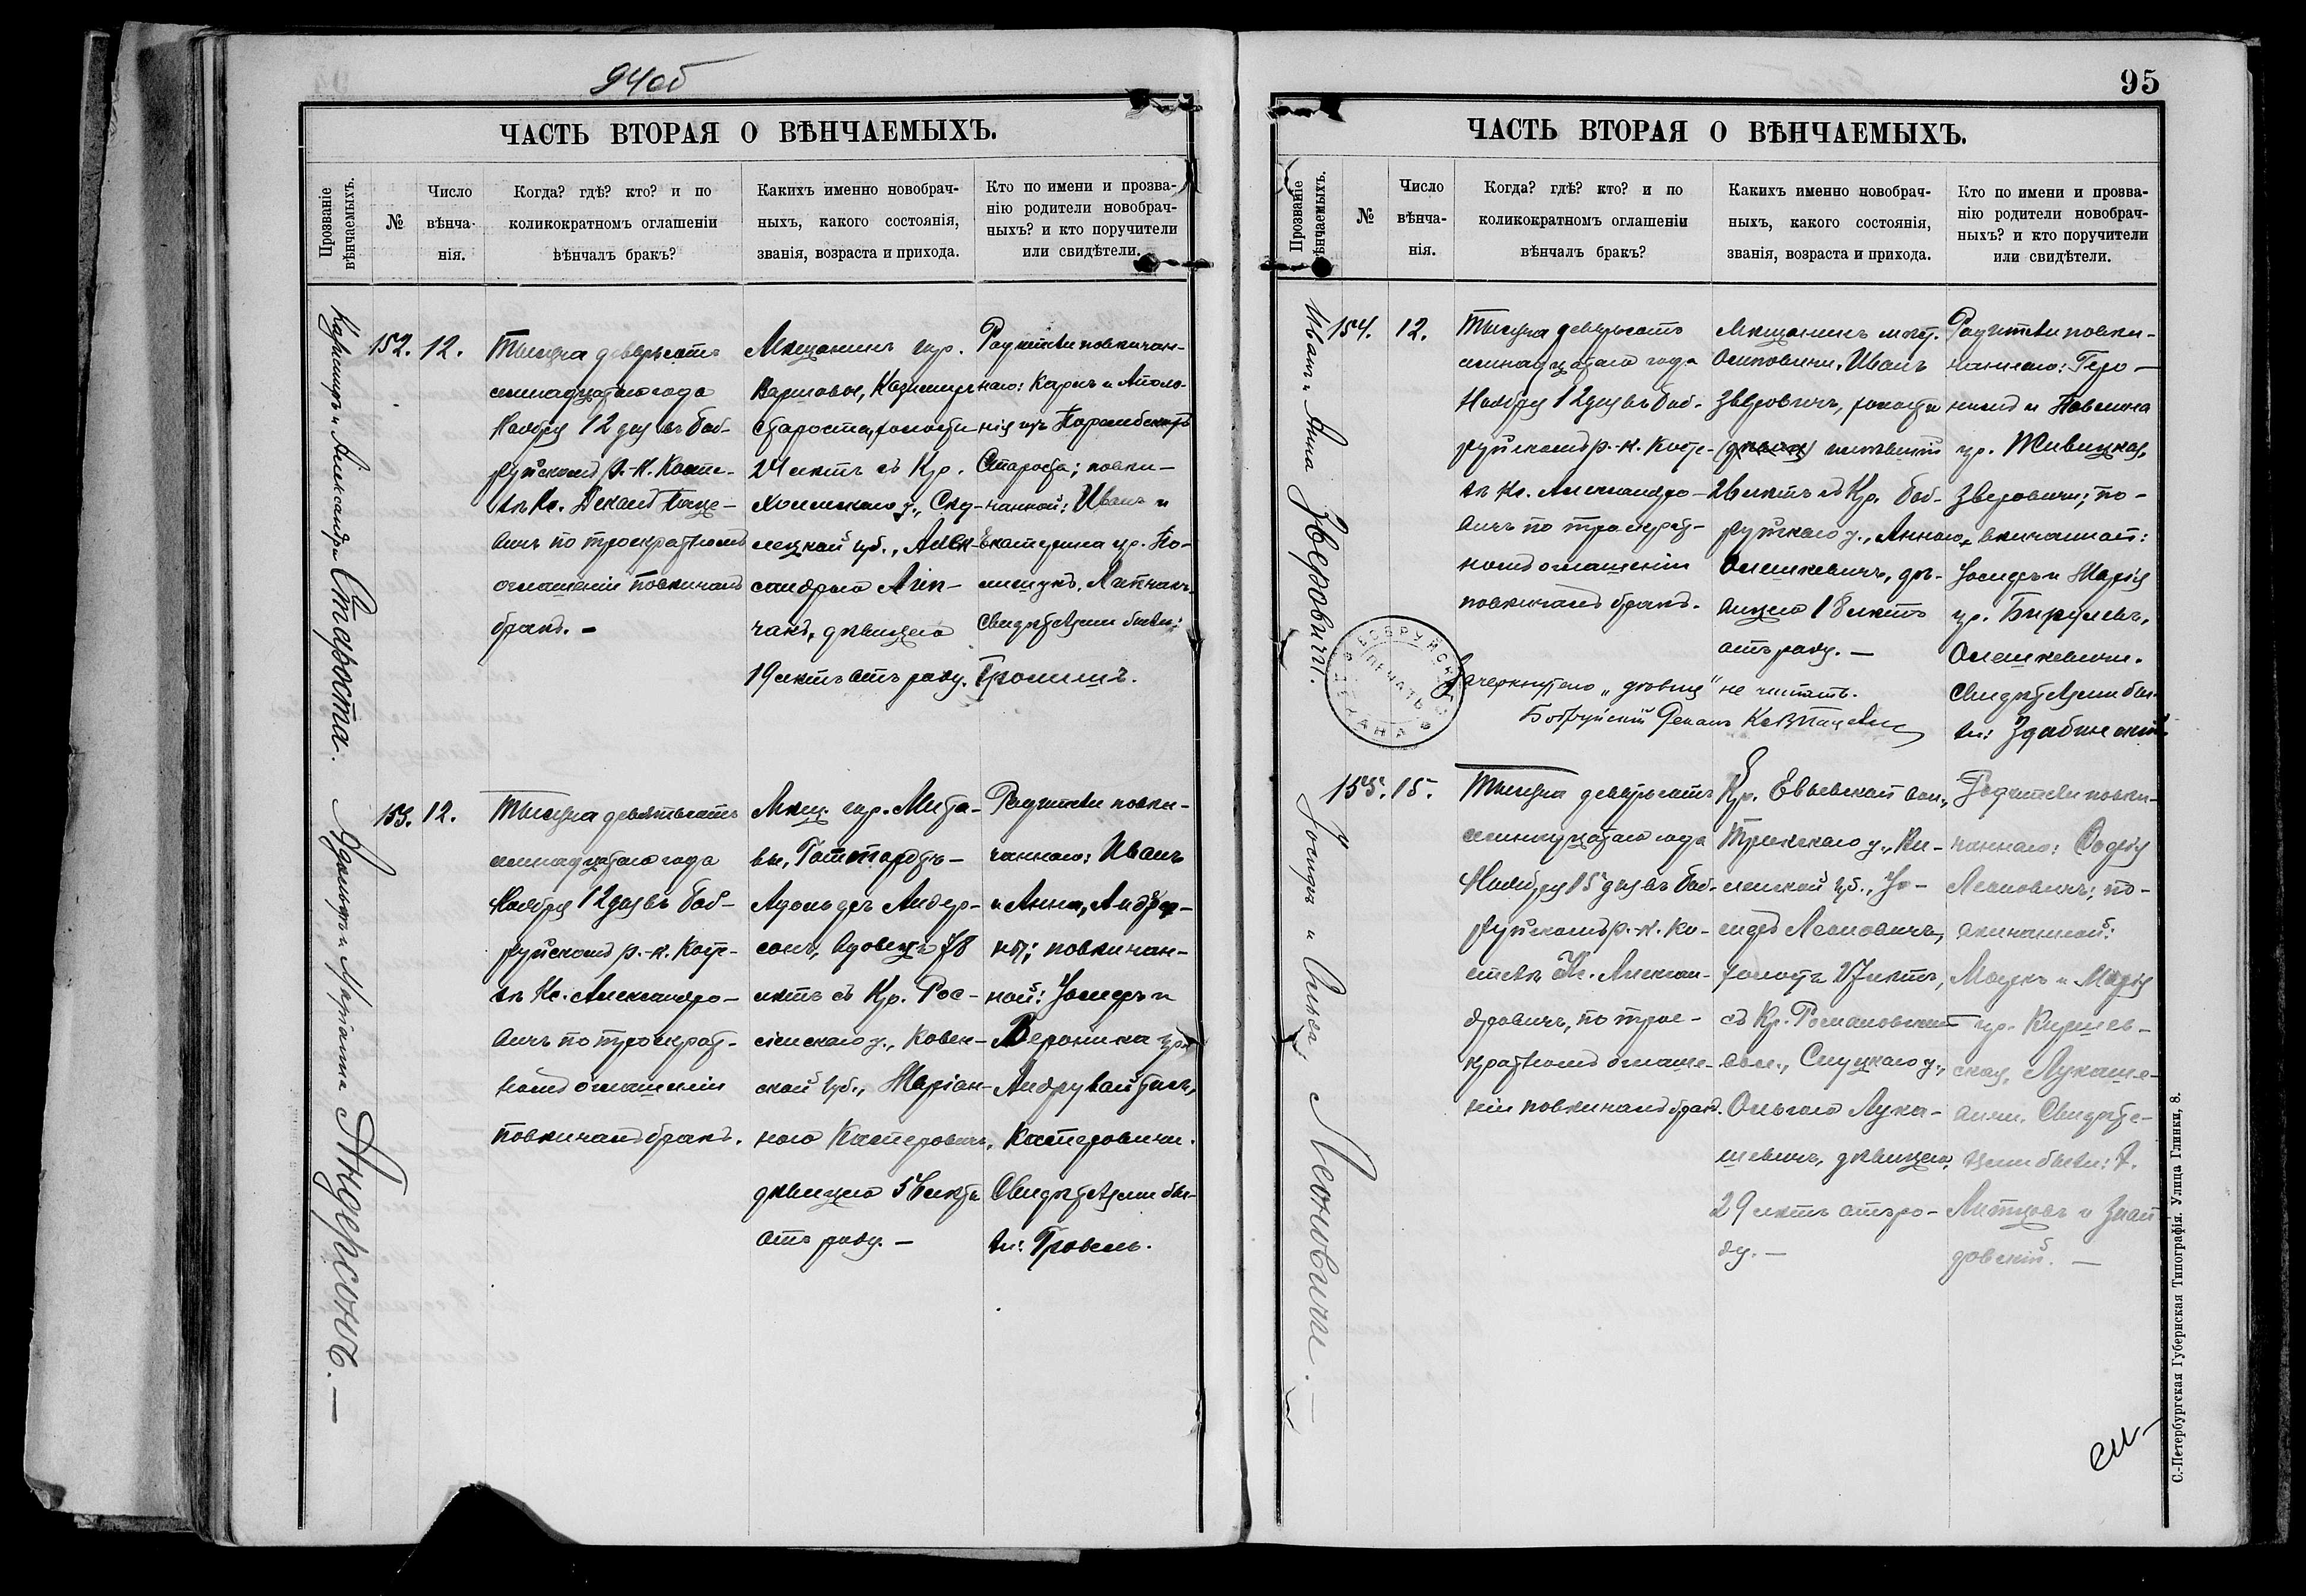 94об
ЧАСТЬ ВТОРАЯ О ВѢНЧАЕМЫХЪ.
Прозваніе
вѣнчаемыхъ.
№
Число
вѣнча-
нія.
Когда? гдѣ? кто? и по
коликократномъ оглашеніи
вѣнчалъ бракъ?
Какихъ именно новобрач-
ныхъ, какого состоянія,
званія, возраста и прихода.
Кто по имени и прозва-
нію родители новобрач-
ныхъ? и кто поручители
или свидѣтели.
Казиміръ и Александра Староста.
152.
12.
Тысяча девятьсотъ
семнадцатаго года
Ноября 12 дня въ Боб-
руйскомъ р.-к. Косте-
лѣ Кс. Деканъ Паце-
вичъ по троекратномъ
оглашеніи повѣнчалъ
бракъ. -
Мѣщанинъ гор.
Варшавы, Казиміръ
Староста, холостъ
24 лѣтъ съ Кр.
Холмскаго у., Сѣд-
лецкой губ., Алек-
сандрою Лап-
чакъ, дѣвицею
19 лѣтъ отъ роду.
Родители повѣнчан-
наго: Карлъ и Аполо-
нія изъ
Староста; повѣн-
чанной: Иванъ и
Екатерина ур. По-
лещукъ, Лапчакъ.
Свидѣтелями были:
Адольфъ и Маріанна Андерсонъ. —
153.
12.
Тысяча девятьсотъ
семнадцатаго года
Ноября 12 дня въ Боб-
руйскомъ р.-к. Косте-
лѣ Кс. Александро-
вичъ по троекрат-
номъ оглашеніи
повѣнчалъ бракъ.
Мѣщ. гор. Мита-
вы, Готгардъ-
Адольфъ Андер-
сонъ, вдовецъ 78
лѣтъ съ Кр. Рос-
сіенскаго у., Ковен-
ской губ., Маріан-
ною Касперовичъ,
дѣвицею 56 лѣтъ
отъ роду. —
Родители повѣн-
чаннаго: Иванъ
и Анна, Андер-
ны; повѣнчан-
ной: Іосифъ и
Вероника ур.
Касперовичи.
Свидѣтелями бы-
ли: Гровель.
95
ЧАСТЬ ВТОРАЯ О ВѢНЧАЕМЫХЪ.
Прозваніе
вѣнчаемыхъ.
№
Число
вѣнча-
нія.
Когда? гдѣ? кто? и по
коликократномъ оглашеніи
вѣнчалъ бракъ?
Какихъ именно новобрач-
ныхъ, какого состоянія,
званія, возраста и прихода.
Кто по имени и прозва-
нію родители новобрач-
ныхъ? и кто поручители
или свидѣтели.
Иванъ и Анна Зверовичи.
154.
12.
Тысяча девятьсотъ
семнадцатаго года
Ноября 12 дня въ Боб-
руйскомъ р.-к. Косте-
лѣ Кс. Александро-
вичъ по троекрат-
номъ оглашеніи
повѣнчалъ бракъ.
Мѣщанинъ мѣст.
Осиповичи, Иванъ
Зверовичъ, холостъ
имѣвшій
26 лѣтъ съ Кр. Боб-
руйскаго у., Анною
Олешкевичъ, дѣ-
вицею 18 лѣтъ
отъ роду. —
Родители повѣн-
чаннаго: Геро-
нимъ и Павлина
ур. Живицкая,
Зверовичи; по-
вѣнчанной:
Іосифъ и Марія
ур. Бируля,
Олешкевичи.
Свидѣтелями бы-
ли: Здабинскій.
БОБРУЙСКАГО ДЕКАНА
ПЕЧАТЬ
Зачеркнутое „дѣвиц" не читать.
Бобруйскій Деканъ Кс В Пацевичъ
Іосифъ и Ольга Леоновичи. —
155.
15.
Тысяча девятьсотъ
семнадцатаго года
Ноября 15 дня въ Боб-
руйскомъ р.-к. ко-
стелѣ Кс. Алексан-
дровичъ, по трое-
кратномъ оглаше-
ніи повѣнчалъ бракъ.
Кр. Евьевской вол.,
Трокскаго у., Ви-
ленской губ., Іо-
сифъ Леоновичъ,
холостъ 27 лѣтъ,
съ Кр. Романовской
вол., Слуцкаго у.,
Ольгою Лука-
шевичъ, дѣвицею,
29 лѣтъ отъ ро-
ду. —
Родители повѣн-
чаннаго: Софія
Леоновичъ; по-
вѣнчанной:
и Марія
ур.
Лукаше-
вичи. Свидѣте-
лями были:
довскій. —
С.-Петербургская Губернская Типографія. Улица Глинки, 8.